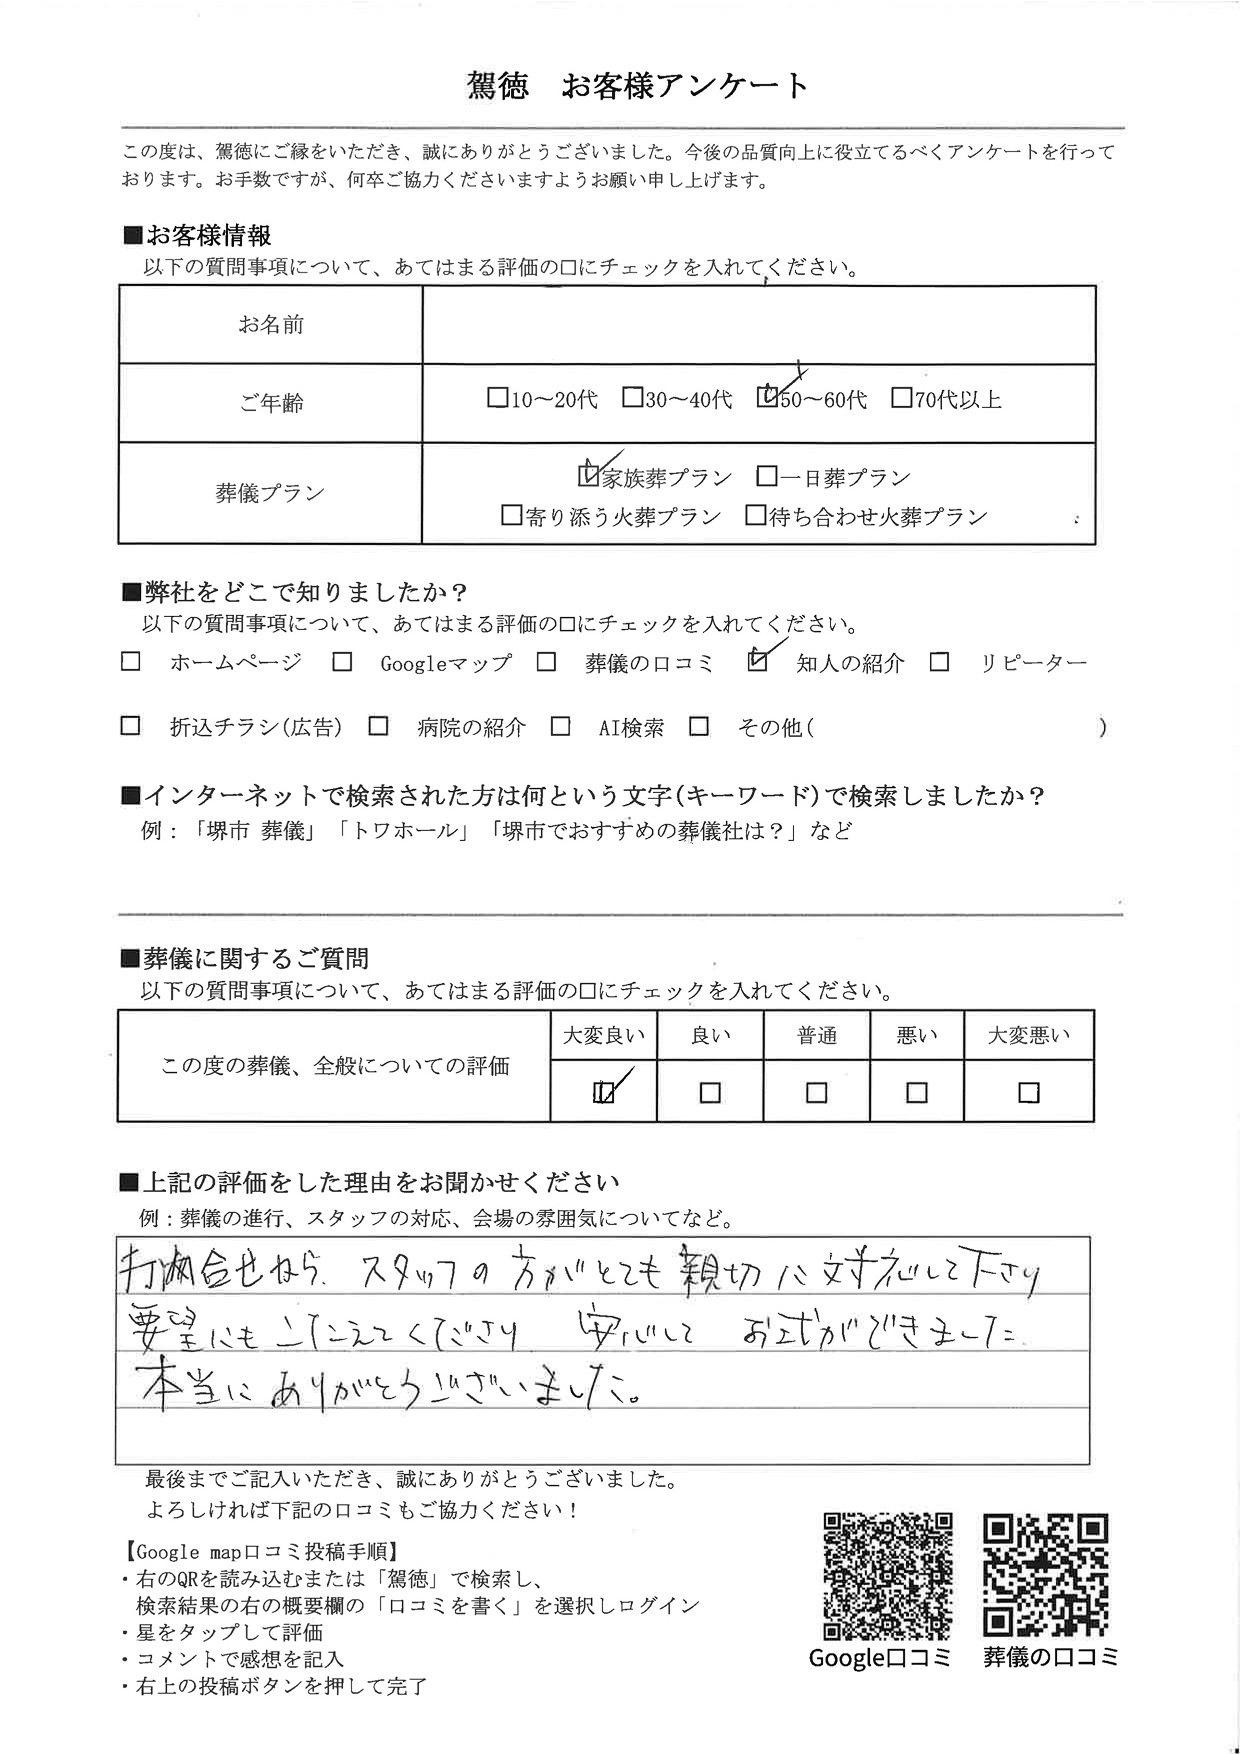 駕徳　お客様アンケート
この度は、駕徳にご縁をいただき、誠にありがとうございました。今後の品質向上に役立てるべくアンケートを行って
おります。お手数ですが、何卒ご協力くださいますようお願い申し上げます。
■お客様情報
以下の質問事項について、あてはまる評価の□にチェックを入れてください。
お名前
ご年齢 □10～20代 □30～40代 ☑50～60代 □70代以上
葬儀プラン ☑家族葬プラン □一日葬プラン
□寄り添う火葬プラン □待ち合わせ火葬プラン
■弊社をどこで知りましたか？
以下の質問事項について、あてはまる評価の□にチェックを入れてください。
□ ホームページ □ Googleマップ □ 葬儀の口コミ ☑ 知人の紹介 □ リピーター
□ 折込チラシ(広告) □ 病院の紹介 □ AI検索 □ その他( )
■インターネットで検索された方は何という文字(キーワード)で検索しましたか？
例：「堺市 葬儀」「トワホール」「堺市でおすすめの葬儀社は？」など
■葬儀に関するご質問
以下の質問事項について、あてはまる評価の□にチェックを入れてください。
大変良い 良い 普通 悪い 大変悪い
この度の葬儀、全般についての評価 ☑ □ □ □ □
■上記の評価をした理由をお聞かせください
例：葬儀の進行、スタッフの対応、会場の雰囲気についてなど。
打合せから、スタッフの方がとても親切に対応して下さり
要望にもこたえてくださり 安心して お式ができました。
本当にありがとうございました。
最後までご記入いただき、誠にありがとうございました。
よろしければ下記の口コミもご協力ください！
【Google map口コミ投稿手順】
・右のQRを読み込むまたは「駕徳」で検索し、
検索結果の右の概要欄の「口コミを書く」を選択しログイン
・星をタップして評価
・コメントで感想を記入
・右上の投稿ボタンを押して完了
Google口コミ 葬儀の口コミ